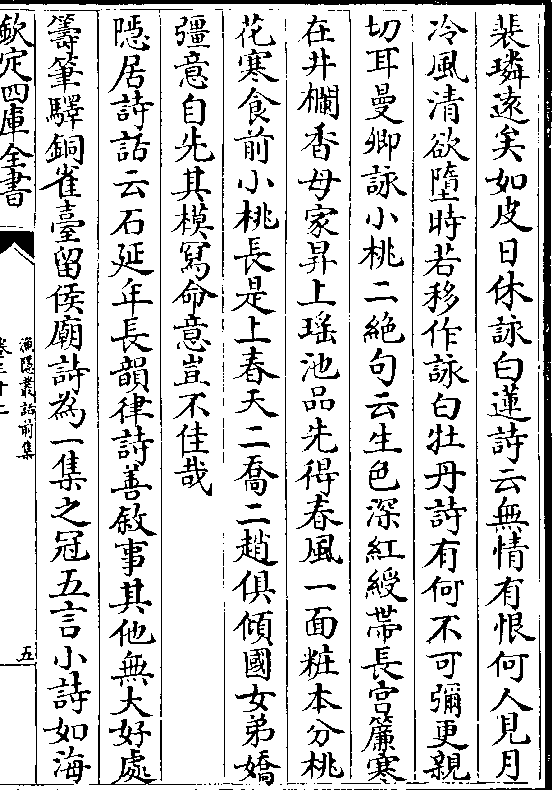 裴璘逺矣如皮日休詠白蓮詩云無情有恨何人見月
冷風清欲墮時若移作詠白牡丹詩有何不可彌更親
切耳曼卿詠小桃二絶句云生色深紅綬帶長宫簾寒
在井欄香母家昇上瑶池品先得春風一面粧本分桃
花寒食前小桃長是上春天二喬二趙俱傾國女弟嬌
彊意自先其模寫命意豈不佳哉
隠居詩話云石延年長韻律詩善敘事其他無大好處
籌筆驛銅雀臺留侯廟詩為一集之冠五言小詩如海
欽定四庫全書
漁隠叢話前集
卷三十二
五